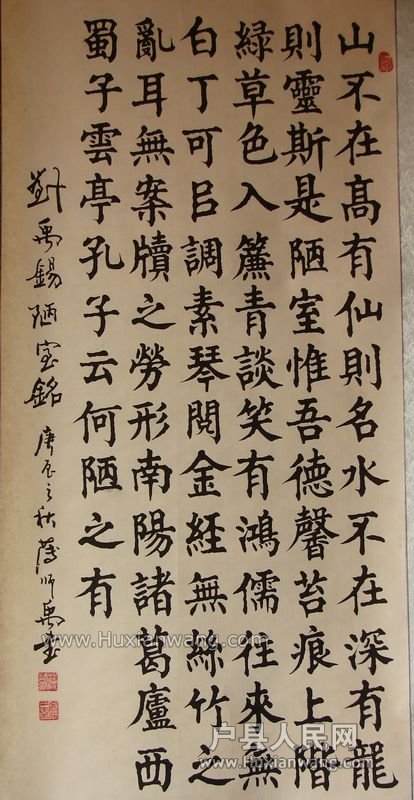 山不在髙有仙則名水不在深有龍
則靈斯是陋室惟吾德馨苔痕上階
綠草色入簾青談笑有鴻儒往來無
白丁可㠯調素琴閱金經無絲竹之
亂耳無案牘之勞形南陽諸葛廬西
蜀子雲亭孔子云何陋之有
劉禹錫陋室銘 庚辰之秋
www.Huxianwang.com
户县人民网
www.Huxianwang.com